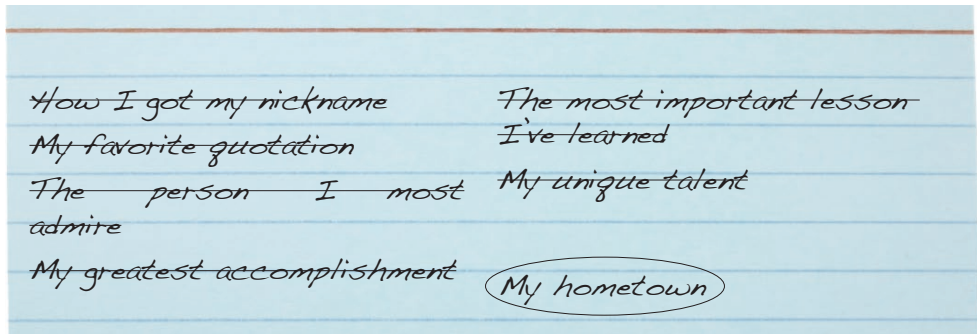 How I got my nickname
My favorite quotation
The person I most
admire
My greatest accomplishment
The most important lesson
I've learned
My unique talent
My hometown